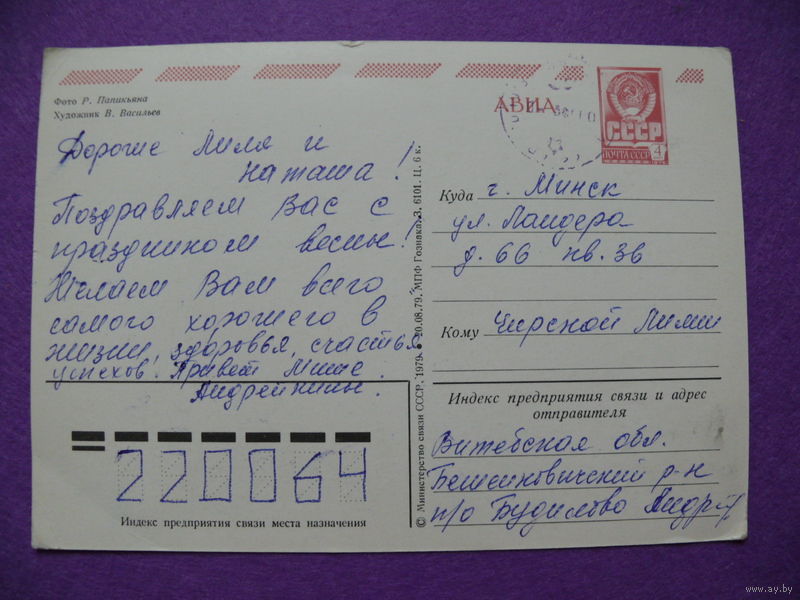 Фото Р. Папикьяна
Художник В. Васильев
АВИА
СССР
ПОЧТА СССР
4
Дорогие Лиля и
Наташа!
Поздравляем Вас с
праздником весны!
Желаем Вам всего
самого хорошего в
жизни, здоровья, счастья
успехов. Привет Мише.
Андрейкины.
220064
Индекс предприятия связи места назначения
© Министерство связи СССР, 1979. 20.08.79. МПФ Гознака. З. 6101. Ц. 6 к.
Куда г. Минск
ул. Ландера
д. 66 кв. 36
Кому Чирской Лилии
Индекс предприятия связи и адрес
отправителя
Витебская обл.
Бешенковичский р-н
п/о Будилово
www.ay.by